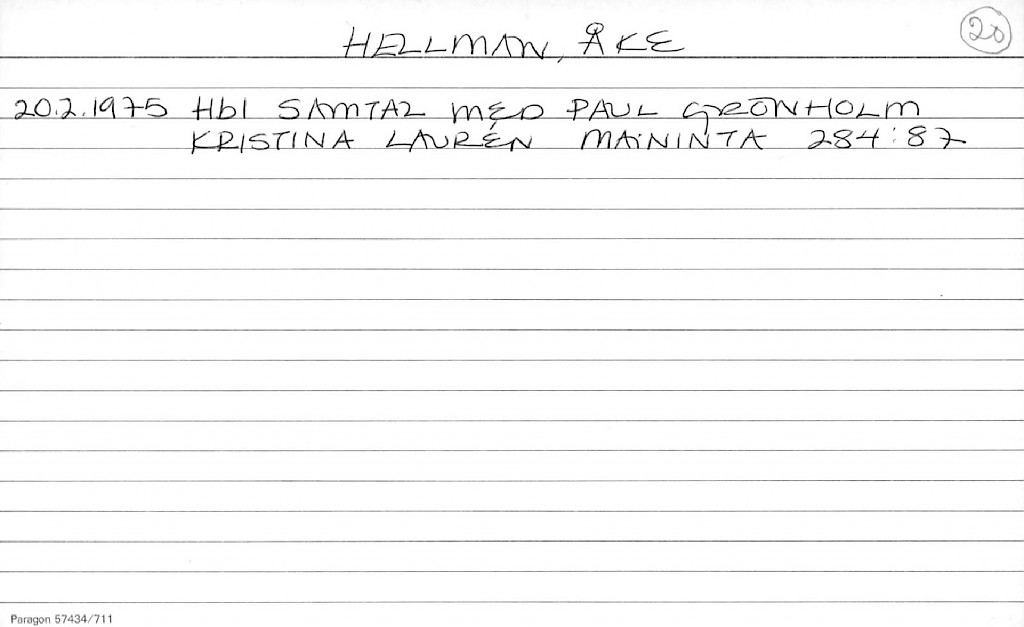 HELLMAN, ÅKE
20
20.2.1975 Hbl SAMTAL MED PAUL GRÖNHOLM
KRISTINA LAURÉN MAININTA 284:87
Paragon 57434/711